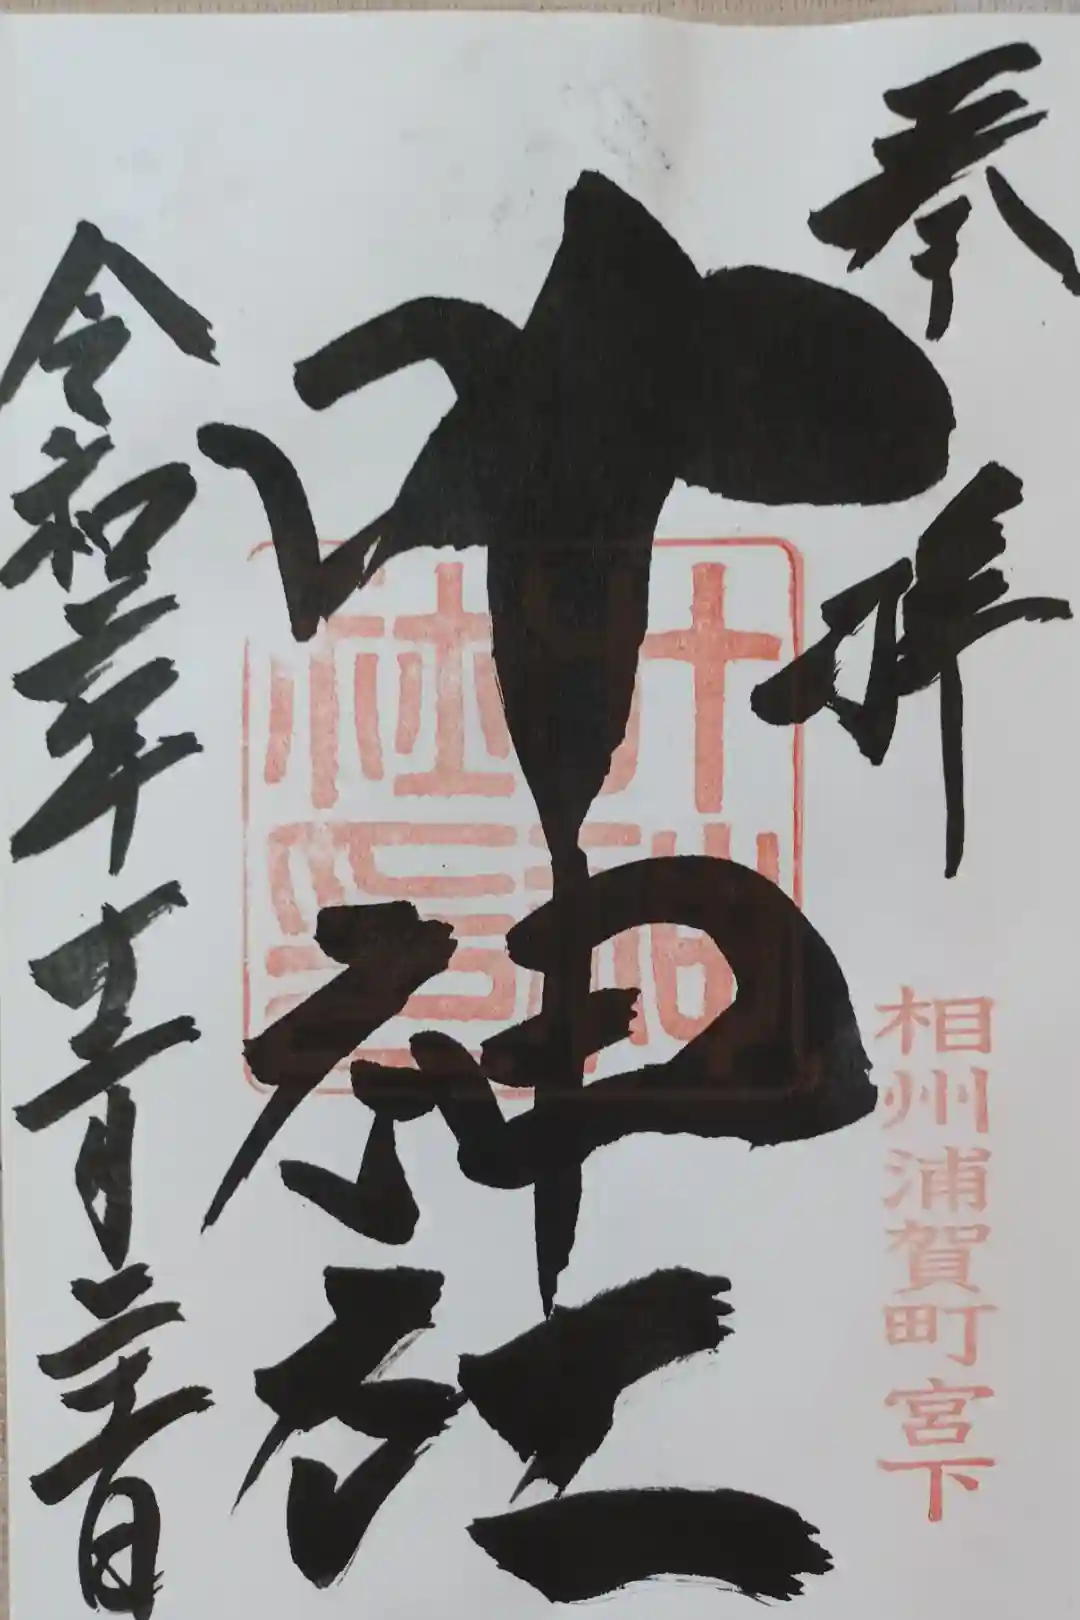 奉拝
相州浦賀町宮下
叶神社
叶神社印
令和二年十二月二十二日